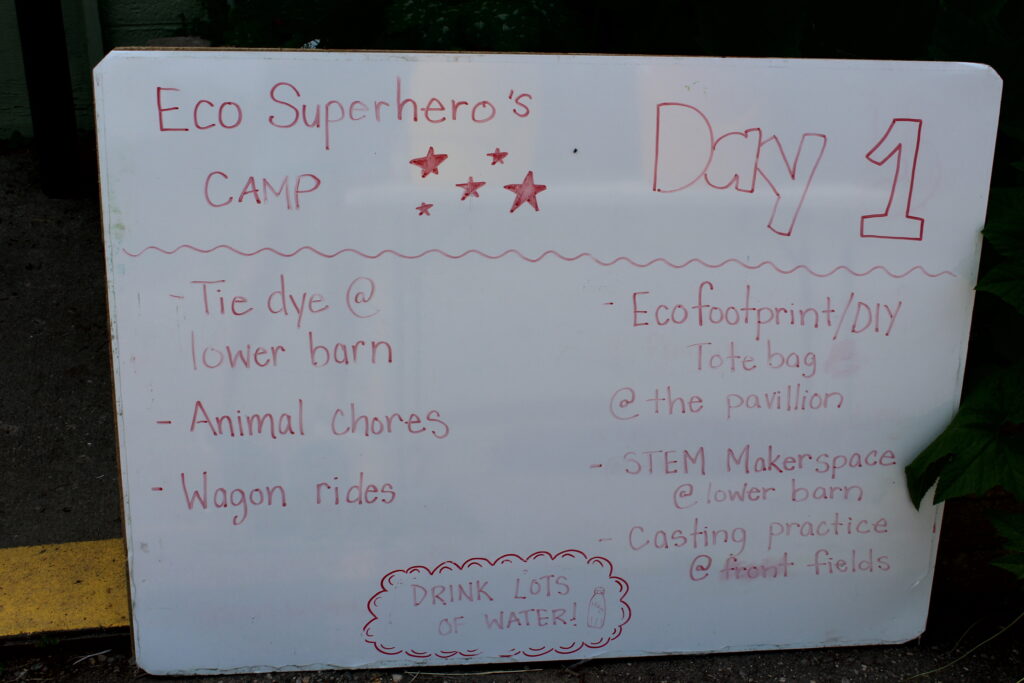 Eco Superhero's
CAMP
Day 1
- Tie dye @
lower barn
- Animal chores
- Wagon rides
- Ecofootprint/DIY
Tote bag
@ the pavillion
- STEM Makerspace
@ lower barn
- Casting practice
@ front fields
DRINK LOTS
OF WATER!